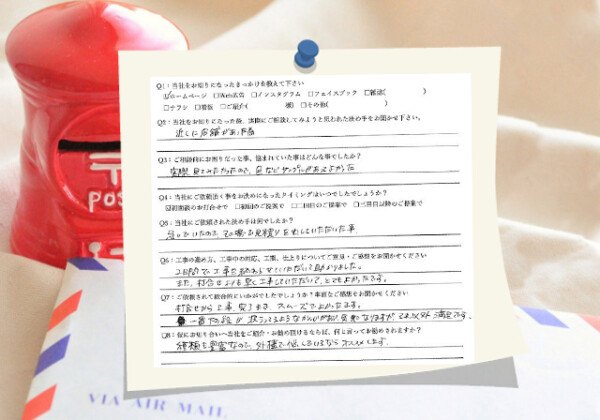 Q1：当社をお知りになったきっかけを教えて下さい
☑ホームページ □Web広告 □インスタグラム □フェイスブック □雑誌( )
□チラシ □看板 □ご紹介( 様) □その他( )
Q2：当社をお知りになった後、実際にご相談してみようと思われた決め手をお聞かせ下さい。
近くに店舗があった為
Q3：ご相談前にお困りだった事、悩まれていた事はどんな事でしたか？
実際見てみたかったので、色などサンプルがあってよかった
Q4：当社にご依頼頂く事をお決めになったタイミングはいつでしたでしょうか？
☑初回のお打合せで □初回のご提案で □二回目のご提案で □三回目以降のご提案で
Q5：当社にご依頼された決め手は何でしたか？
急いでいたので、その場でお見積りを出していただいた事
Q6：工事の進め方、工事中の対応、工期、仕上りについてご意見・ご感想をお聞かせください
2日間で工事を終わらせていただいて助かりました。
また、打合せよりも早く工事していただいて、とてもよかったです。
Q7：ご依頼されて総合的にいかがでしたでしょうか？率直なご感想をお聞かせください
打合せから工事、完了まで、スムーズでよかったです。
一番下の段が
それ以外満足です。
Q8：仮にお知り合いへ当社をご紹介・お勧め頂けるならば、何と言ってお勧めされますか？
種類も豊富なので、外構で
オススメします。
POS
VIA AIR MAIL